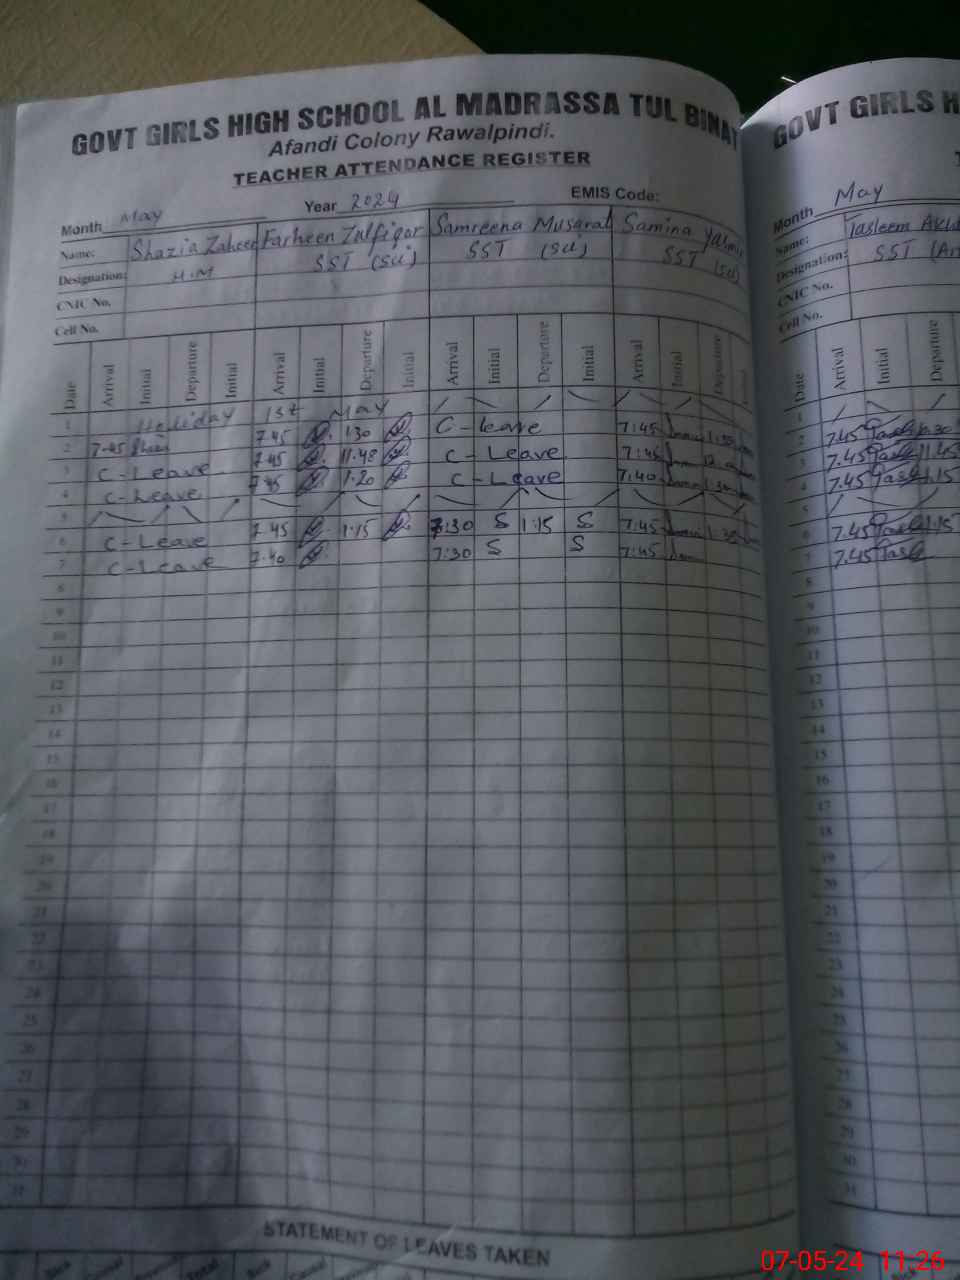 GOVT GIRLS HIGH SCHOOL AL MADRASSA TUL BINAT
Afandi Colony Rawalpindi.
TEACHER ATTENDANCE REGISTER
Month May Year 2024 EMIS Code:
Name: Shazia Zaheer Farheen Zulfiqar Samreena Musarat Samina Yasmin
Designation: H.M SST (Sci) SST (Sci) SST (Sci)
CNIC No.
Cell No.
Date Arrival Initial Departure Initial Arrival Initial Departure Initial Arrival Initial Departure Initial Arrival Initial Departure
1 Holiday 1st May
2 7.45 7.45 1:30 C-leave 7:45 1:30
3 C-Leave 7.45 11.48 C-Leave 7:45 12
4 C-Leave 7.45 1.20 C-Leave 7:40 1:30
5
6 C-Leave 7.45 1:15 7:30 S 1:15 S 7:45 1:30
7 C-Leave 7.40 7:30 S S 7:45
8
9
10
11
12
13
14
15
16
17
18
19
20
21
22
23
24
25
26
27
28
29
30
31
STATEMENT OF LEAVES TAKEN
GOVT GIRLS H
Month May
Name: Tasleem
Designation: SST
CNIC No.
Cell No.
Date Arrival Initial Departure
1
2 7.45
3 7.45 11.45
4 7.45 1.15
5
6 7.45 1:15
7 7.45
8
9
10
11
12
13
14
15
16
17
18
19
20
21
22
23
24
25
26
27
28
29
30
31
07-05-24 11:26